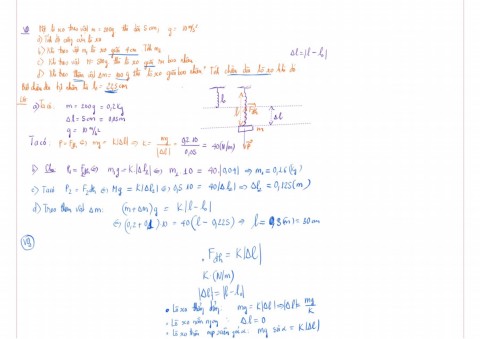 Một lò xo treo vật m = 200g thì dãn 5cm, g = 10 m/s²
a) Tính độ cứng của lò xo
b) Khi treo vật m₂ lò xo giãn 4cm Tính m₂
c) Khi treo vật M = 500g thì lò xo giãn ra bao nhiêu
d) Khi treo thêm vật Δm = 100g thì lò xo giãn bao nhiêu? Tính chiều dài lò xo khi đó
Biết chiều dài tự nhiên là l₀ = 22,5cm
Δl = |l - l₀|
a) Ta có: m = 200g = 0,2kg
Δl = 5cm = 0,05m
g = 10 m/s²
Ta có: P = Fđh ⇔ mg = K|Δl| ⇒ K = mg/|Δl| = 0,2.10/0,05 = 40(N/m)
l₀ l Fđh Δl m P
b) P₂ = Fđh ⇔ m₂g = K|Δl₂| ⇔ m₂.10 = 40.|0,04| ⇒ m₂ = 0,16(kg)
c) Ta có P₂ = F₂đh ⇔ Mg = K|Δl₂| ⇔ 0,5.10 = 40|Δl₂| ⇒ Δl₂ = 0,125(m)
d) Treo thêm vật Δm: (m+Δm)g = K|l - l₀|
⇔ (0,2+0,1).10 = 40(l - 0,225) ⇒ l = 0,3(m) = 30cm
. Fđh = K|Δl|
K (N/m)
|Δl| = |l - l₀|
• Lò xo thẳng đứng: mg = K|Δl| ⇒ |Δl| = mg/K
• Lò xo nằm ngang: Δl = 0
• Lò xo trên mp xiên góc α: mg sin α = K|Δl|